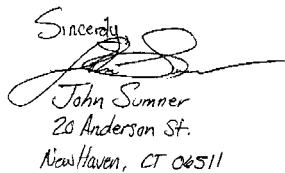 Sincerely
John Sumner
20 Anderson St.
New Haven, CT 06511